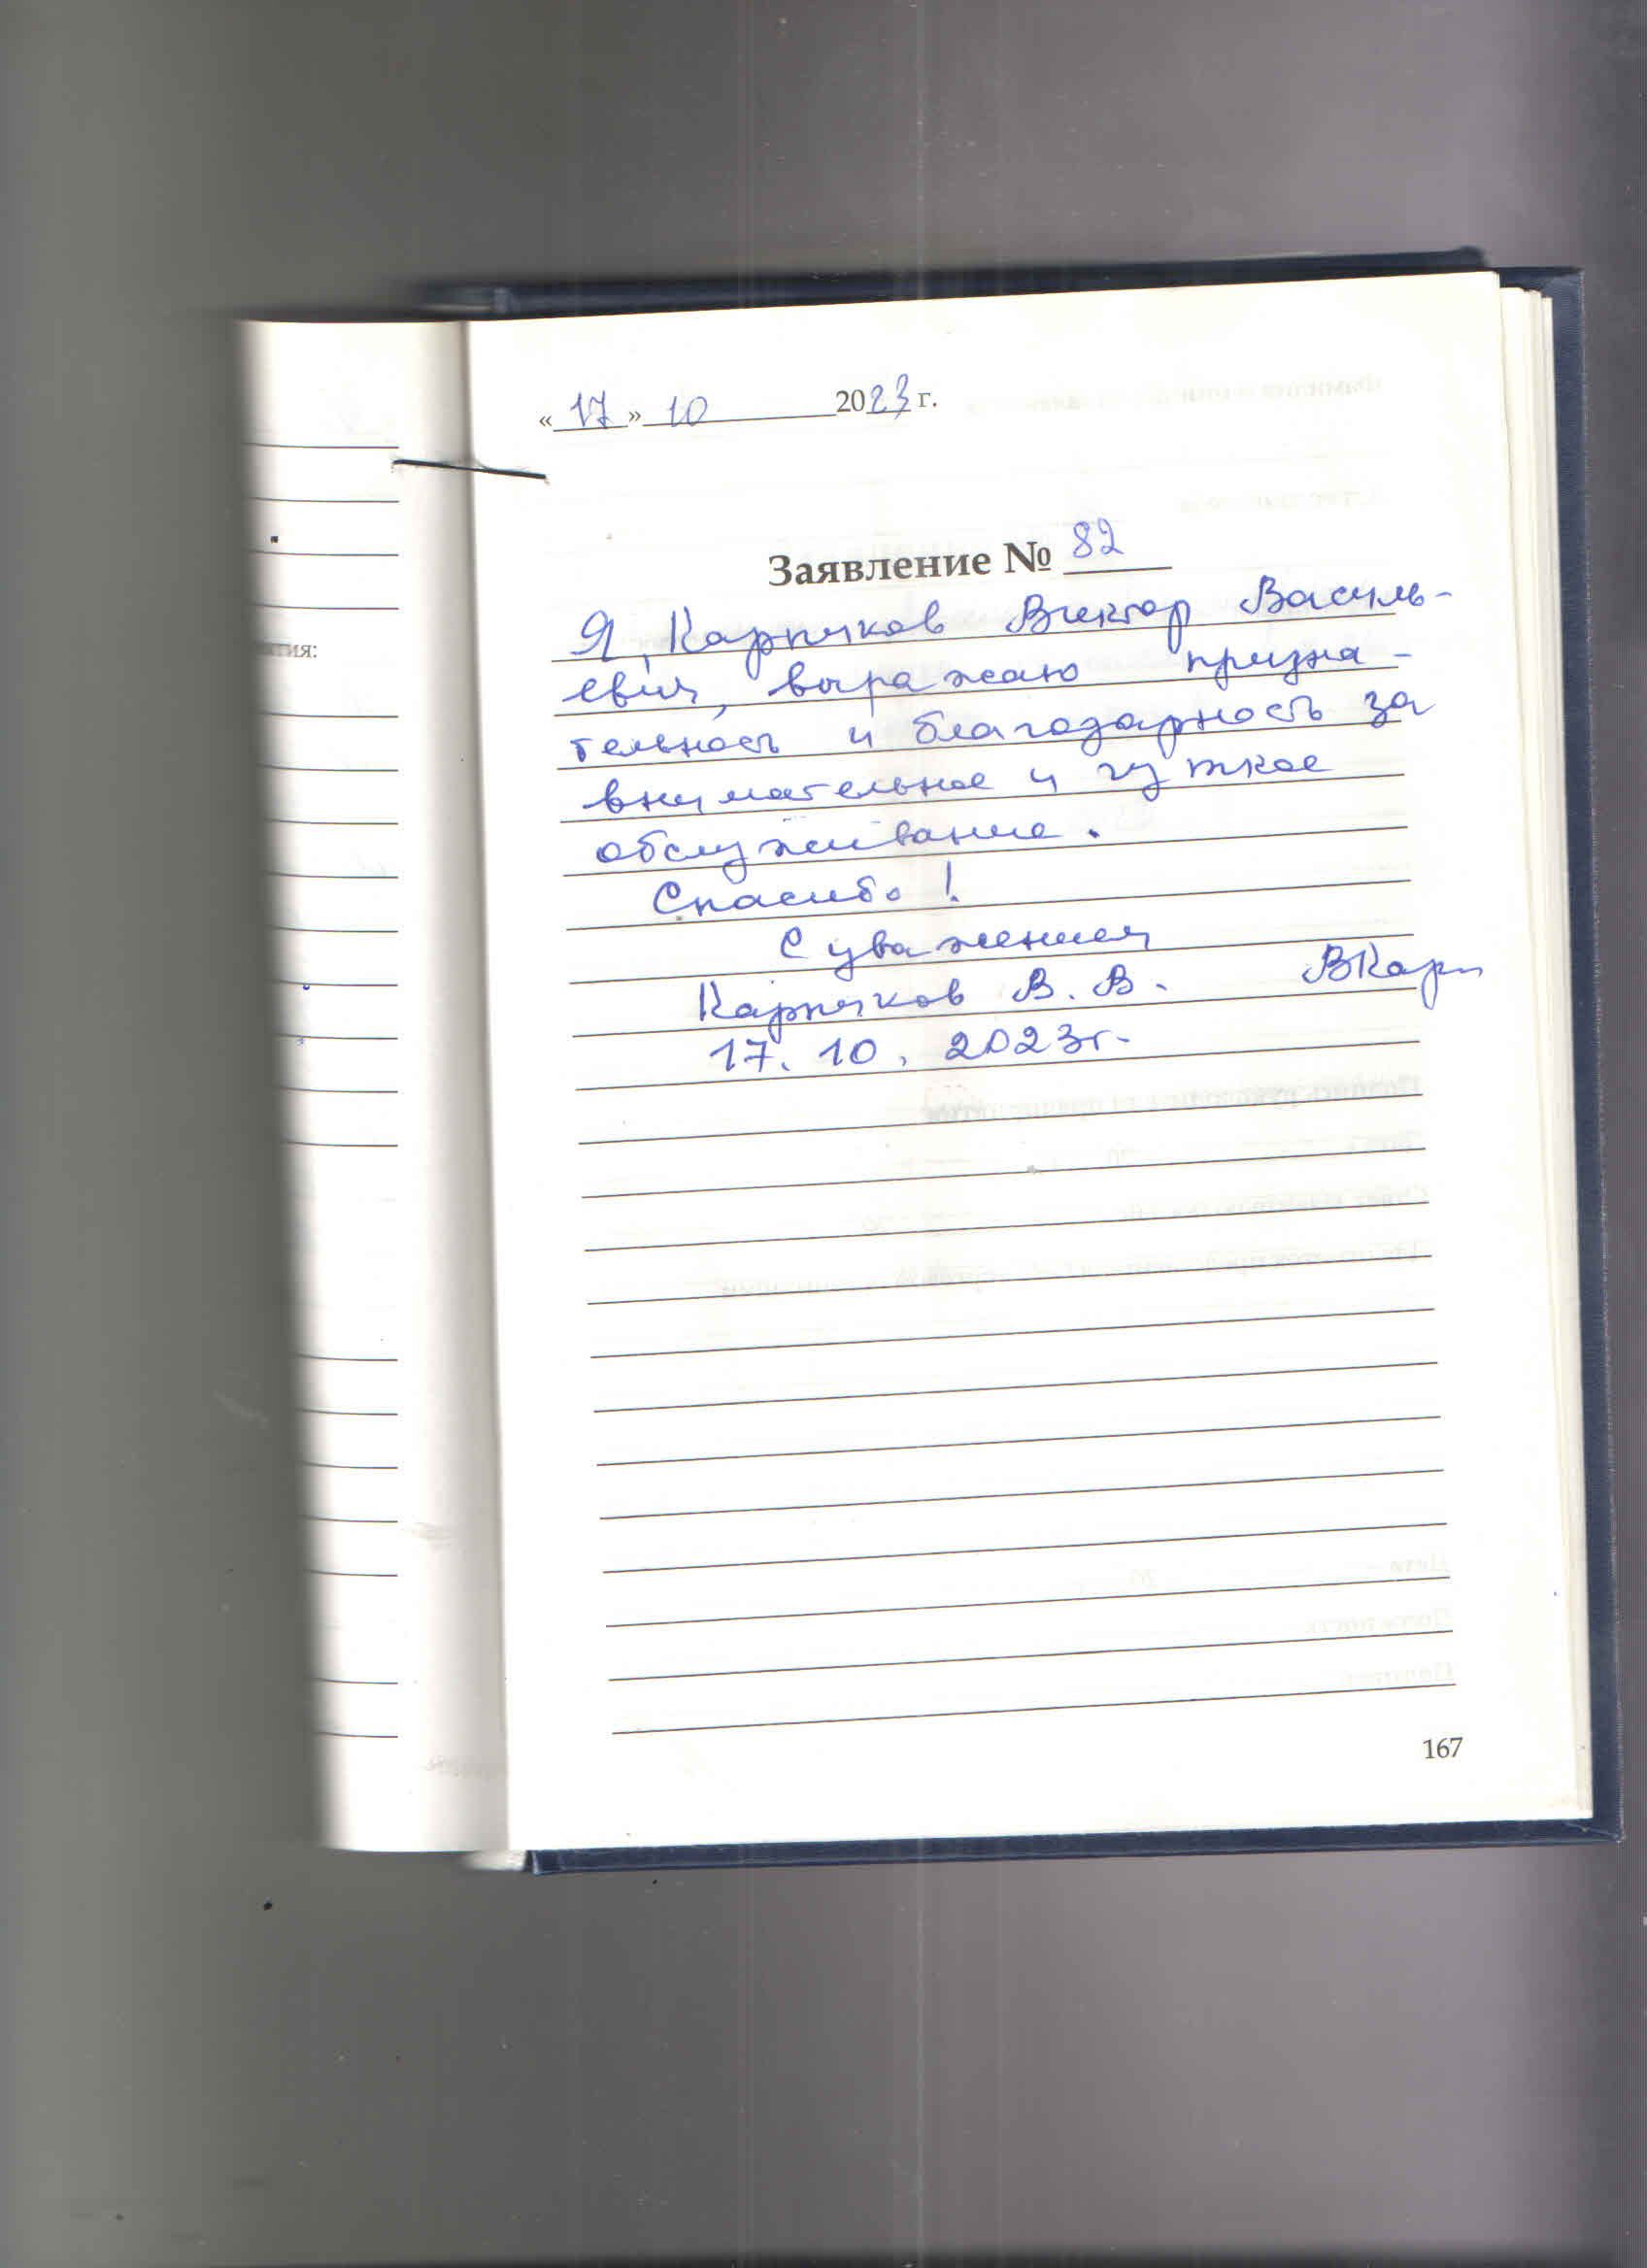 «17» 10 2023 г.
Заявление № 82
Я, Карпуков Виктор Василь-
евич, выражаю призна-
тельность и благодарность за
внимательное и чуткое
обслуживание.
Спасибо!
С уважением
Карпуков В. В. ВКарп
17. 10. 2023г.
тия:
167